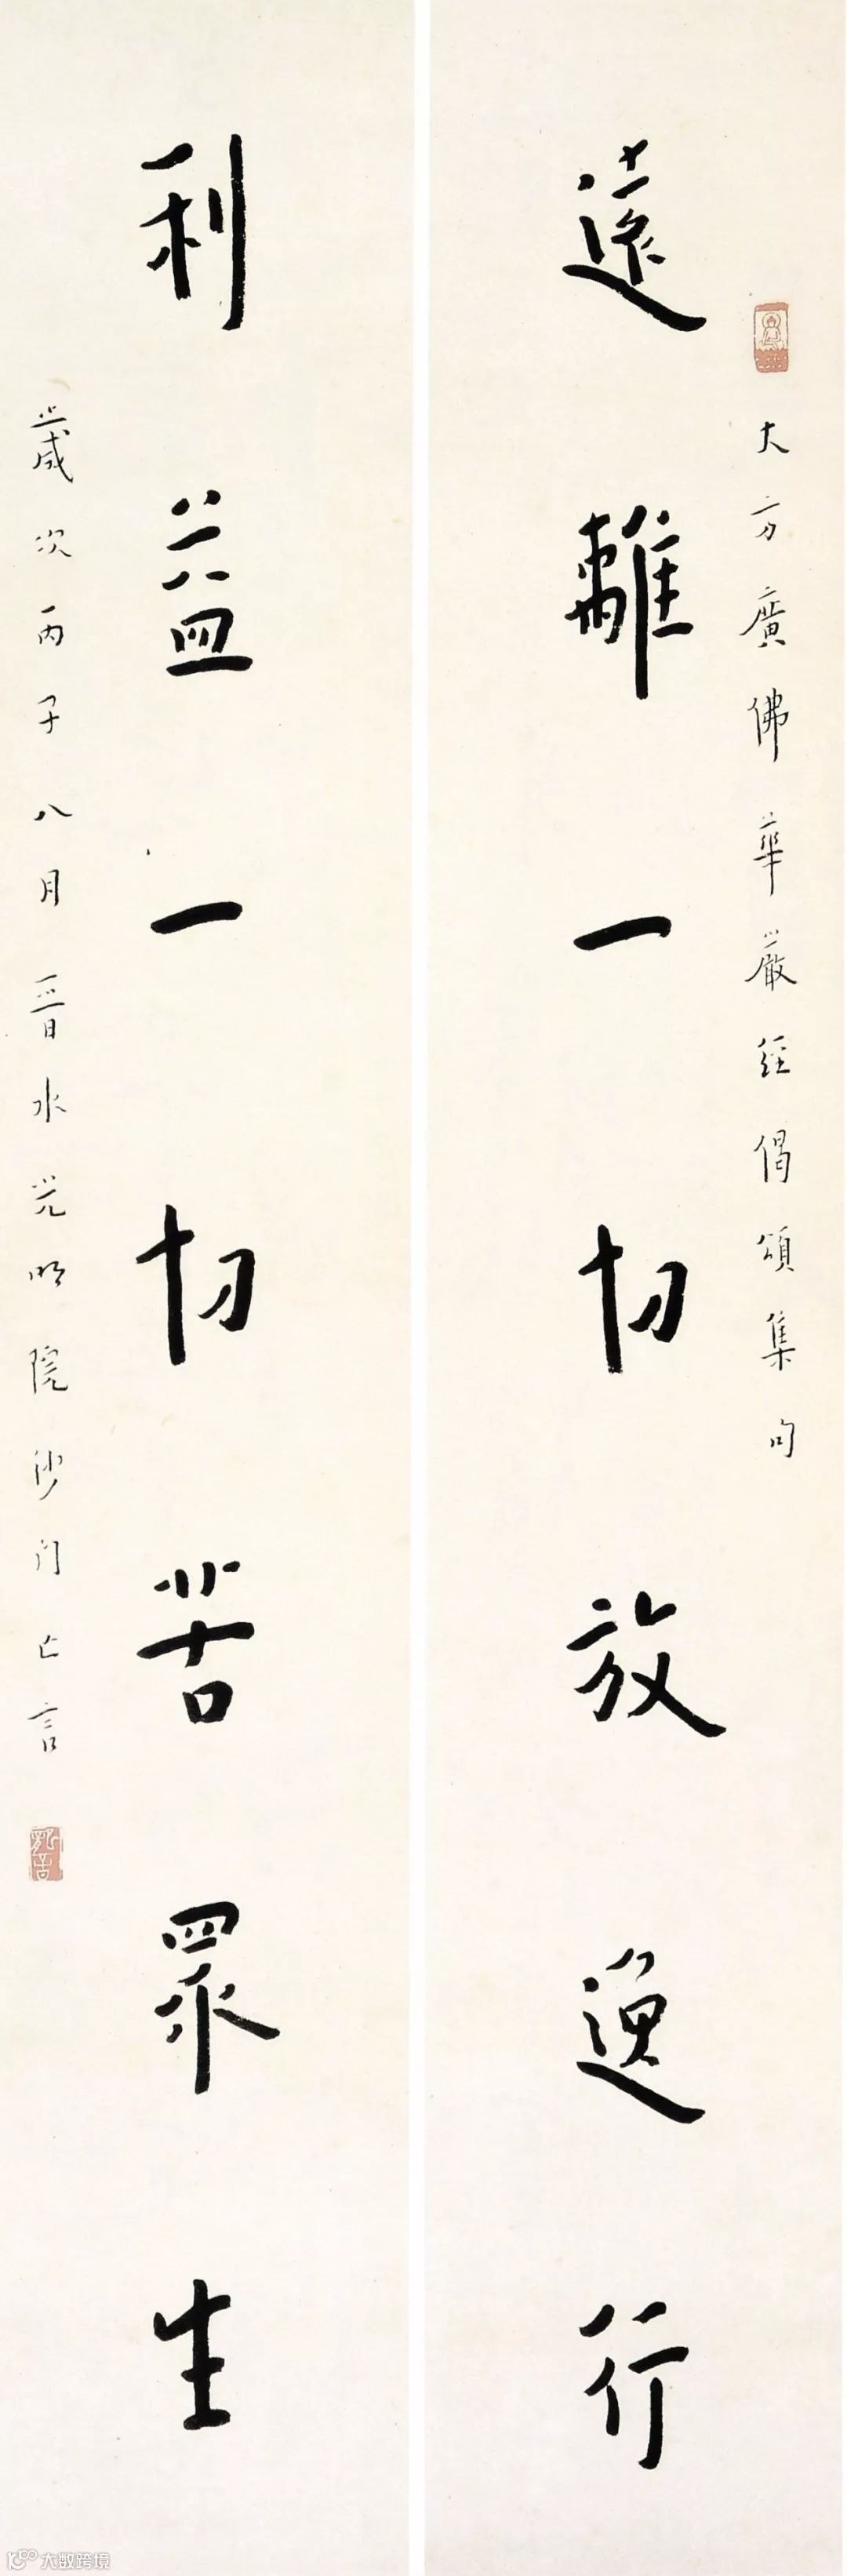 大方廣佛華嚴經偈頌集句
遠離一切放逸行
利益一切苦衆生
歲次丙子八月晉水光明院沙門亡言
大数跨境